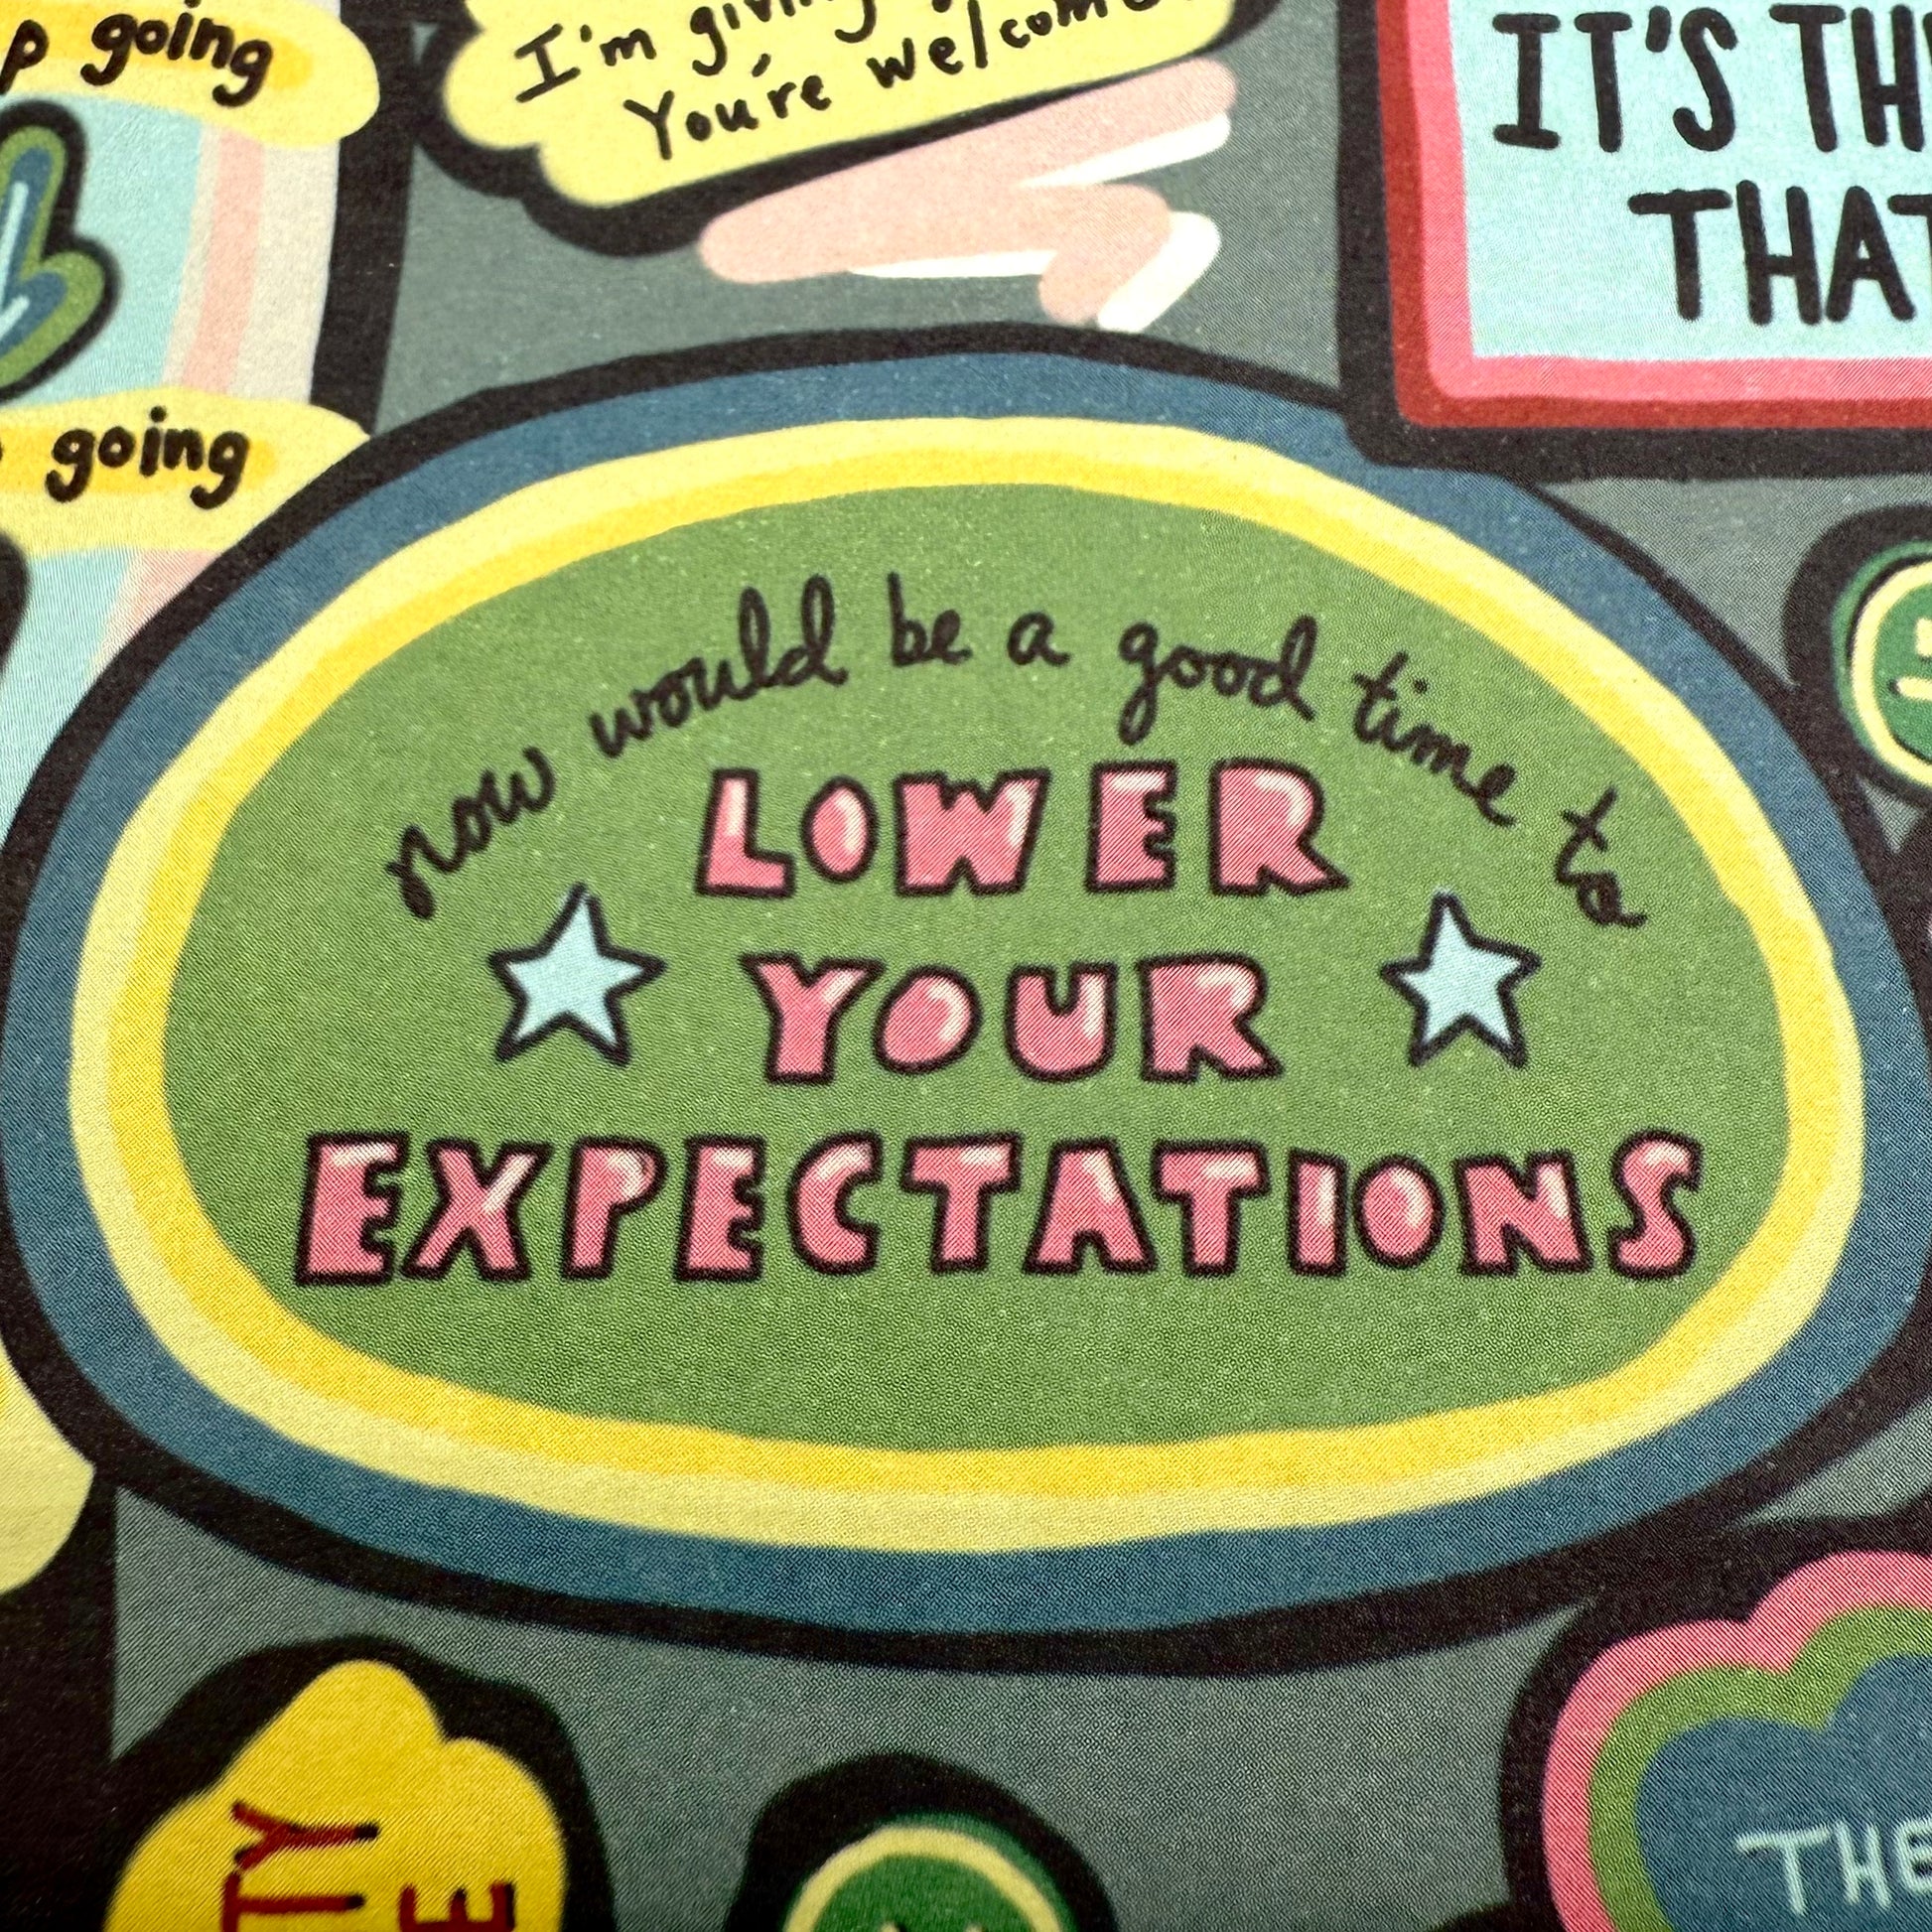 going
I'm giving
You're welcome
IT'S
THAT
going
now would be a good time to
LOWER
YOUR
EXPECTATIONS